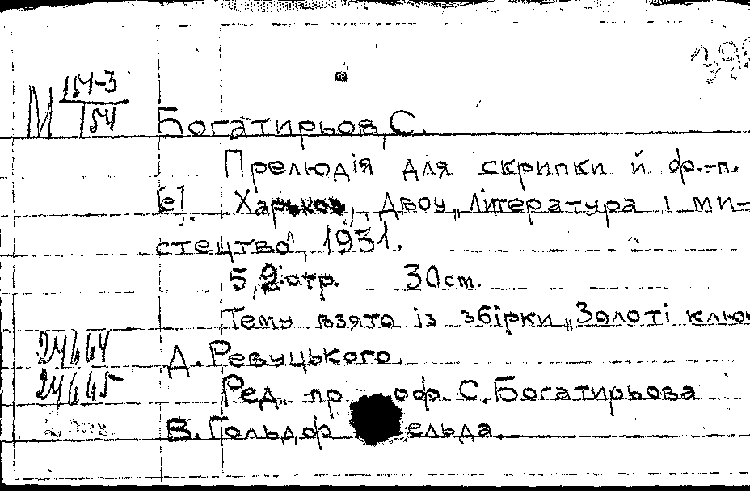 М 154-3/154
Богатирьов, С.
Прелюдія для скрипки й ф.-п.
Харьков, Двоу „Література і ми-
стецтво" 1931.
5,2 стр. 30 см.
Тему взято із збірки „Золоті клю
24664 Д. Ревуцького.
24665 Ред. пр оф. С. Богатирьова
В. Гольдф ельда.